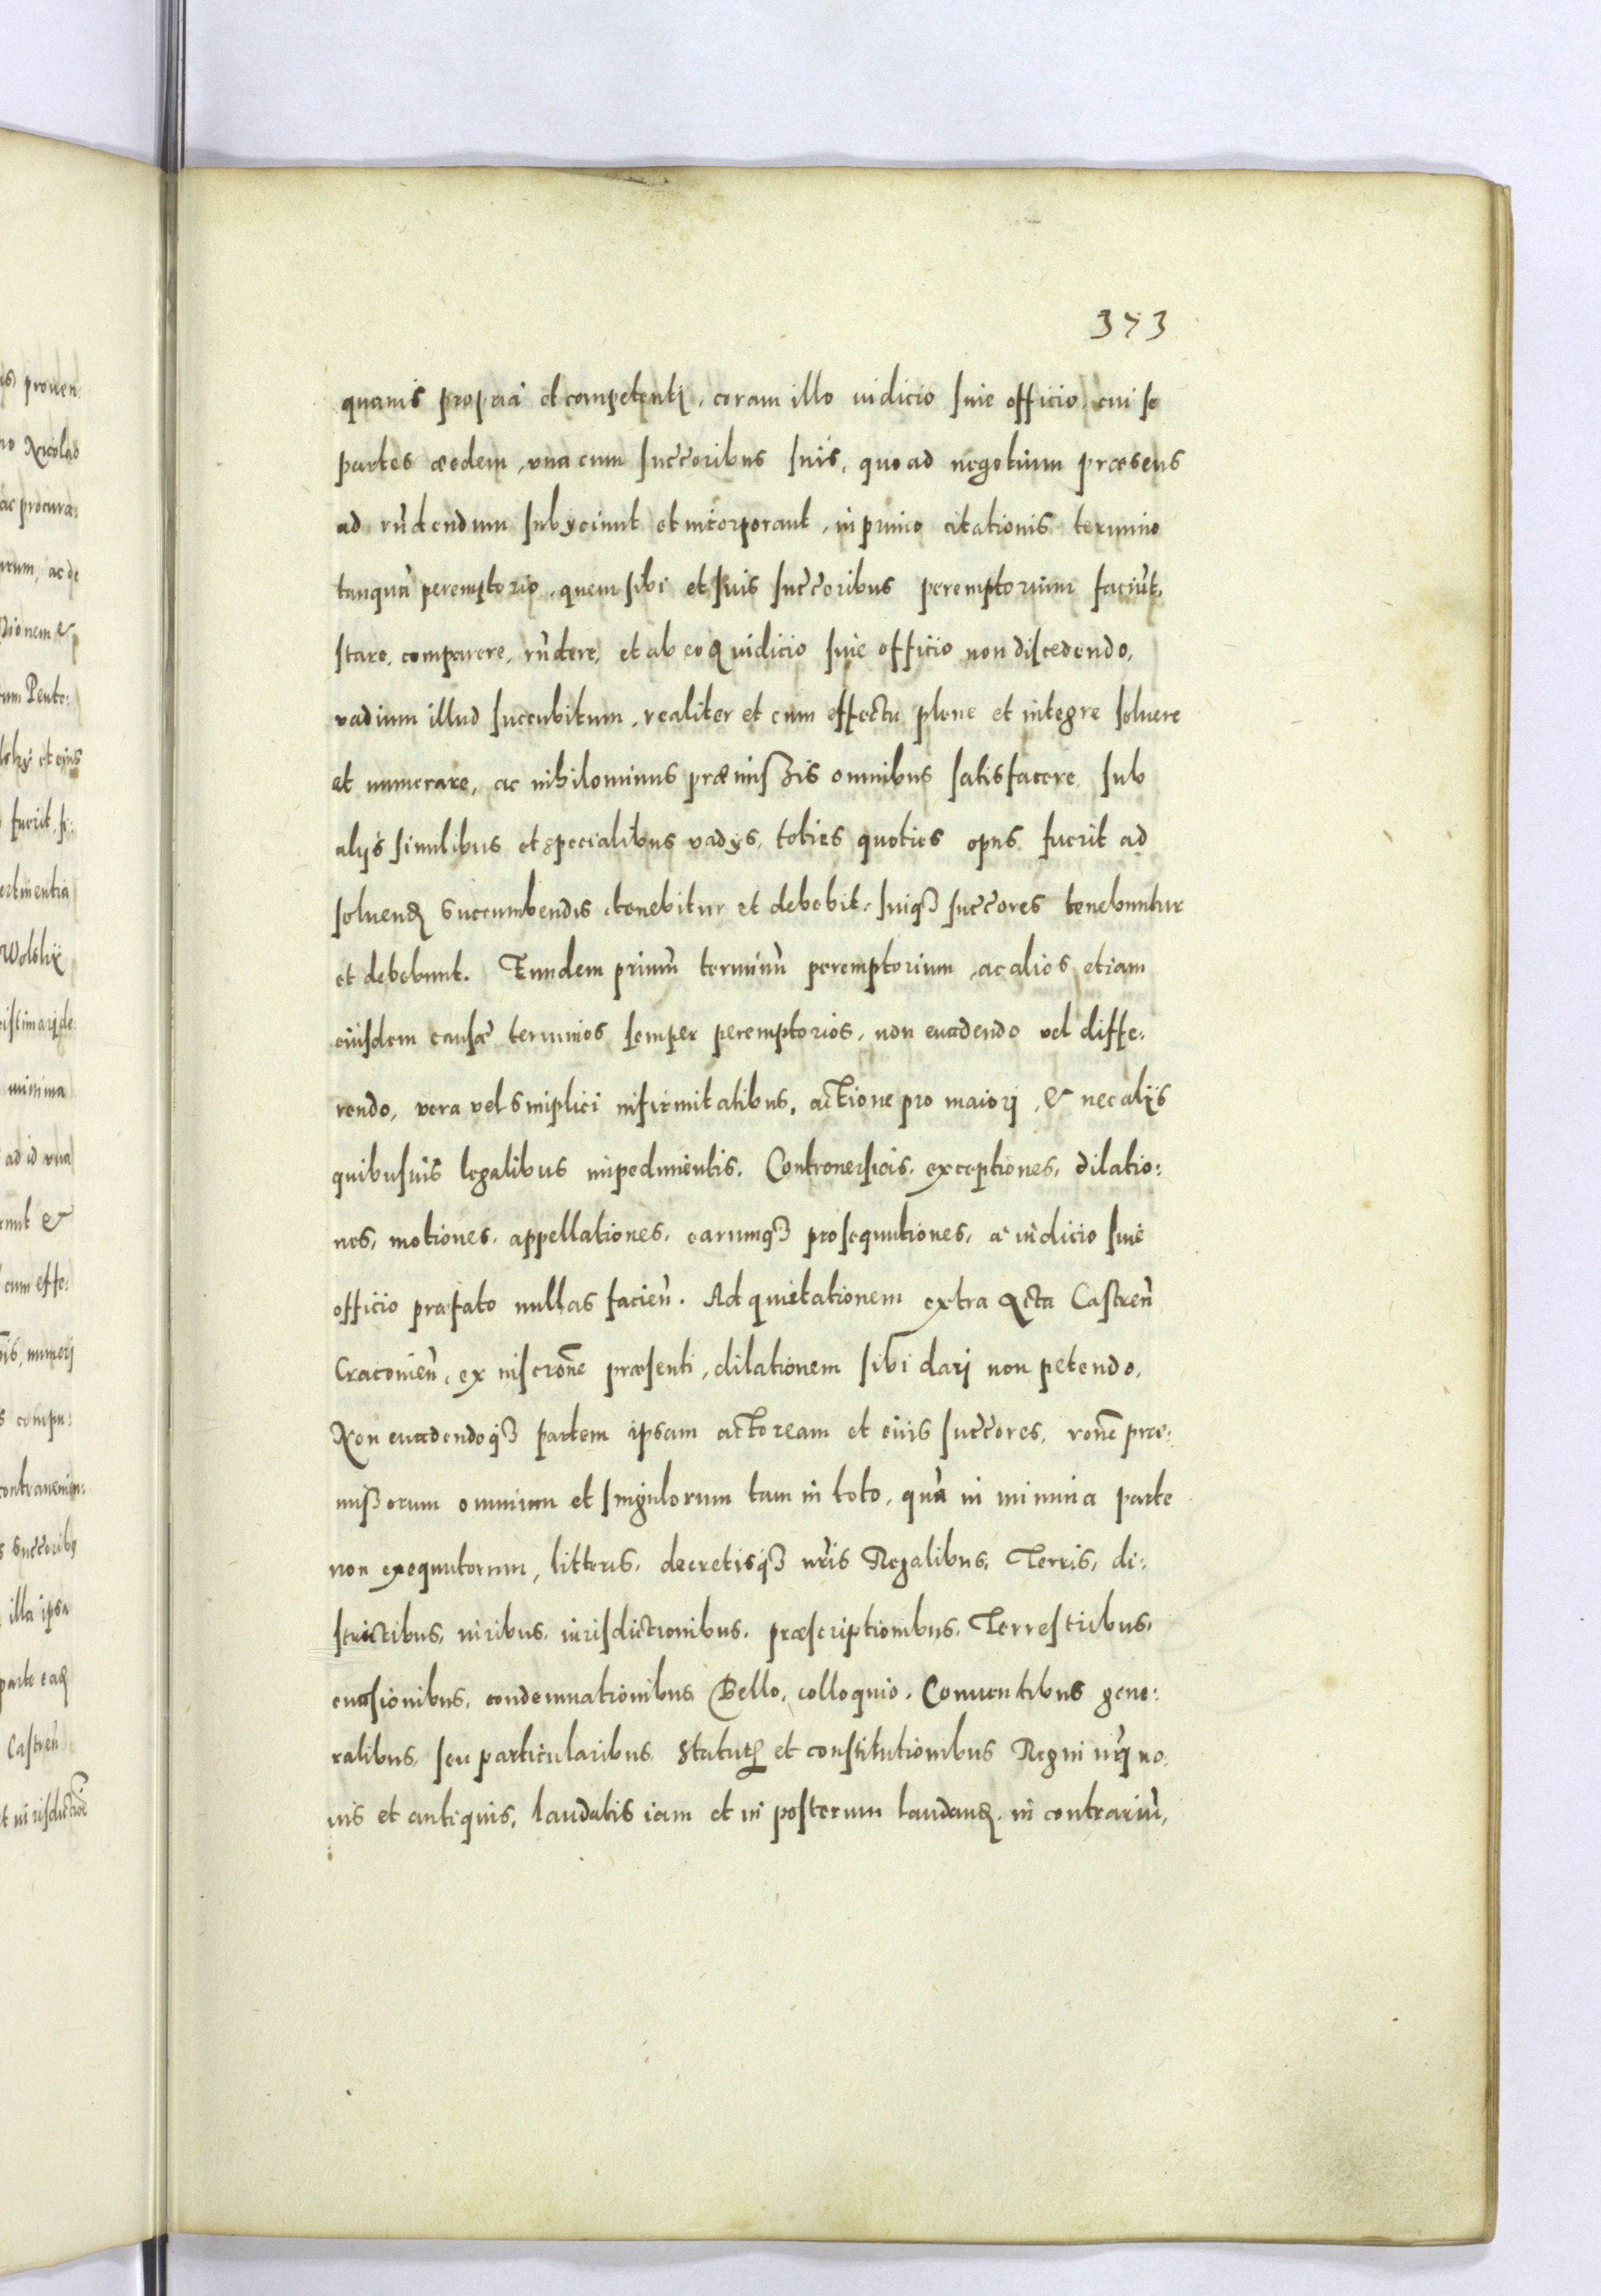 373
quamis propria et competenti, coram illo iudicio siue officio, cui se
partes eædem, vna cum succ̃oribus suis, quo ad negotium præsens
ad rñdendum subyciunt et incorporant, in primo citationis termino
tanquã peremptorio, quem sibi et suis succ̃oribus peremptorium faciũt,
stare, comparere, rñdere, et ab eoq iudicio siue officio non discedendo,
vadium illud succubitum, realiter et cum effectu plene et integre soluere
et numerare, ac nihilominus præmissis omnibus satisfacere, sub
alijs similibus et specialibus vadys, toties quoties opus fuerit ad
soluend succumbendis, tenebitur et debebit, suiq3 succ̃ores tenebuntur
et debebunt. Eundem primũ terminũ peremptorium, ac alios etiam
eiusdem causæ terminos semper peremptorios, non euadendo vel diffe:
rendo, vera vel simplici infirmitatibus, actione pro maiori, & nec alijs
quibusuis legalibus impedimentis. Controuersias, exceptiones, dilatio:
nes, motiones, appellationes, earumq3 prosequutiones, a iudicio siue
officio præfato nullas facieñ. Ad quietationem extra Acta Castreñ
Cracouieñ, ex inscrõne præsenti, dilationem sibi dari non petendo,
Non euadendoq3 partem ipsam actoream et eius succ̃ores, rõne præ:
missorum omnium et singulorum tam in toto, quã in minima parte
non exequutorum, litteris, decretisq3 nr̃is Regalibus, Terris, di:
strictibus, iuribus, iurisdictionibus, præscriptionibus, Terrestribus,
euasionibus, condemnationibus, Bello, colloquio, Conuentibus gene:
ralibus, seu particularibus, Statut et constitutionibus Regni nr̃i no:
uis et antiquis, laudatis iam et in posterum laudand, in contrariũ,